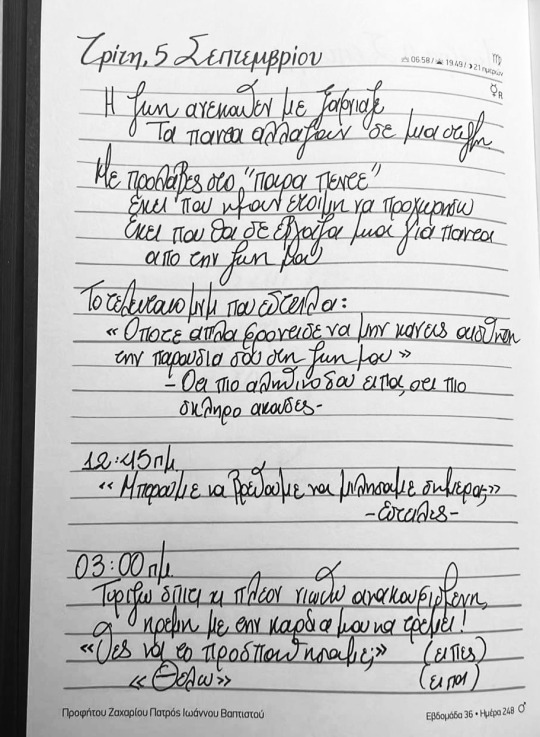 Τρίτη, 5 Σεπτεμβρίου
06:58 / 19:49 / 21 ημερών
Η ζωη ανεκαθεν με ξαφνιαζε
Τα παντα αλλαζουν σε μια στιγμη
Με προλαβες στο "παρα πεντε"
Εκει που ημουν ετοιμη να προχωρησω
Εκει που θα σε εβγαζα μια για παντα
απο την ζωη μου
Το τελευταιο μνμ που εστειλα:
« Οποτε απλα φροντισε να μην κανεις αισθητη
την παρουσια σου στη ζωη μου »
- Οτι πιο αληθινο σου ειπα, οτι πιο
σκληρο ακουσες -
12:45πμ
« Μπορουμε να βρεθουμε να μιλησουμε σημερα; »
- Εστειλες -
03:00πμ
Γυριζω σπιτι κι πλεον νιωθω ανακουφισμενη,
ηρεμη με την καρδια μου να τρεμει!
«Θες να το προσπαθησουμε;» (ειπες)
«Θελω» (ειπα)
Προφήτου Ζαχαρίου Πατρός Ιωάννου Βαπτιστού
Εβδομάδα 36 • Ημέρα 248